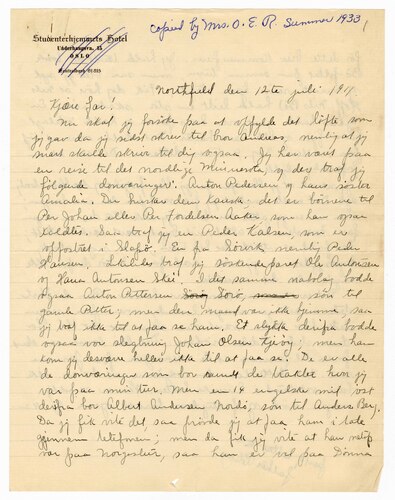 copied by Mrs. O. E. R. Summer 1933
Studenterhjemmets Hotel
Underhaugsvn. 15
OSLO
Northfield den 12te juli 1917.
Kjære far.
Nu skal jeg forsöke paa at opfylde det löfte som
jeg gav da jeg sidst skrev til bror Andreas, nemlig at jeg
snart skulde skrive til dig ogsaa. Jeg har været paa
en reise til det nordlige Minnesota og der traf jeg
fölgende dönværinger: Anton Pedersen og hans söster
Amalia. Du husker dem kanske; det er börnene til
Per Johan eller Per Fordelsen Aaker, som han ogsaa
kaldtes. Saa traf jeg en Peder Kalsen, som er
opfostret i Slapö. En fra Sörvik nemlig Peder
Hansen. Likeledes traf jeg söskendeparet Ole Antonsen
og Hanna Antonsen Stei. I det samme nabolag bodde
ogsaa Anton Pettersen Sörö, sön til
gamle Petter; men den mand var ikke hjemme saa
jeg traf ikke til at faa se ham. Et stykke derifra bodde
ogsaa vor slegtning Johan Olsen Tjeöy; men ham
kom jeg desværre hellers ikke til at faa se. De er alle
de dönværinger som bor rundt de trakter hvor jeg
var paa min tur. Men en 14 engelske mil öst
derifra bor Albert Andersen Nordö, sön til Anders Berg.
Da jeg fik vite det saa prövde jeg at faa ham i tale
gjennem telefonen; men da fik jeg vite at han netop
var paa Norgestur, saa han er vel paa Dönna